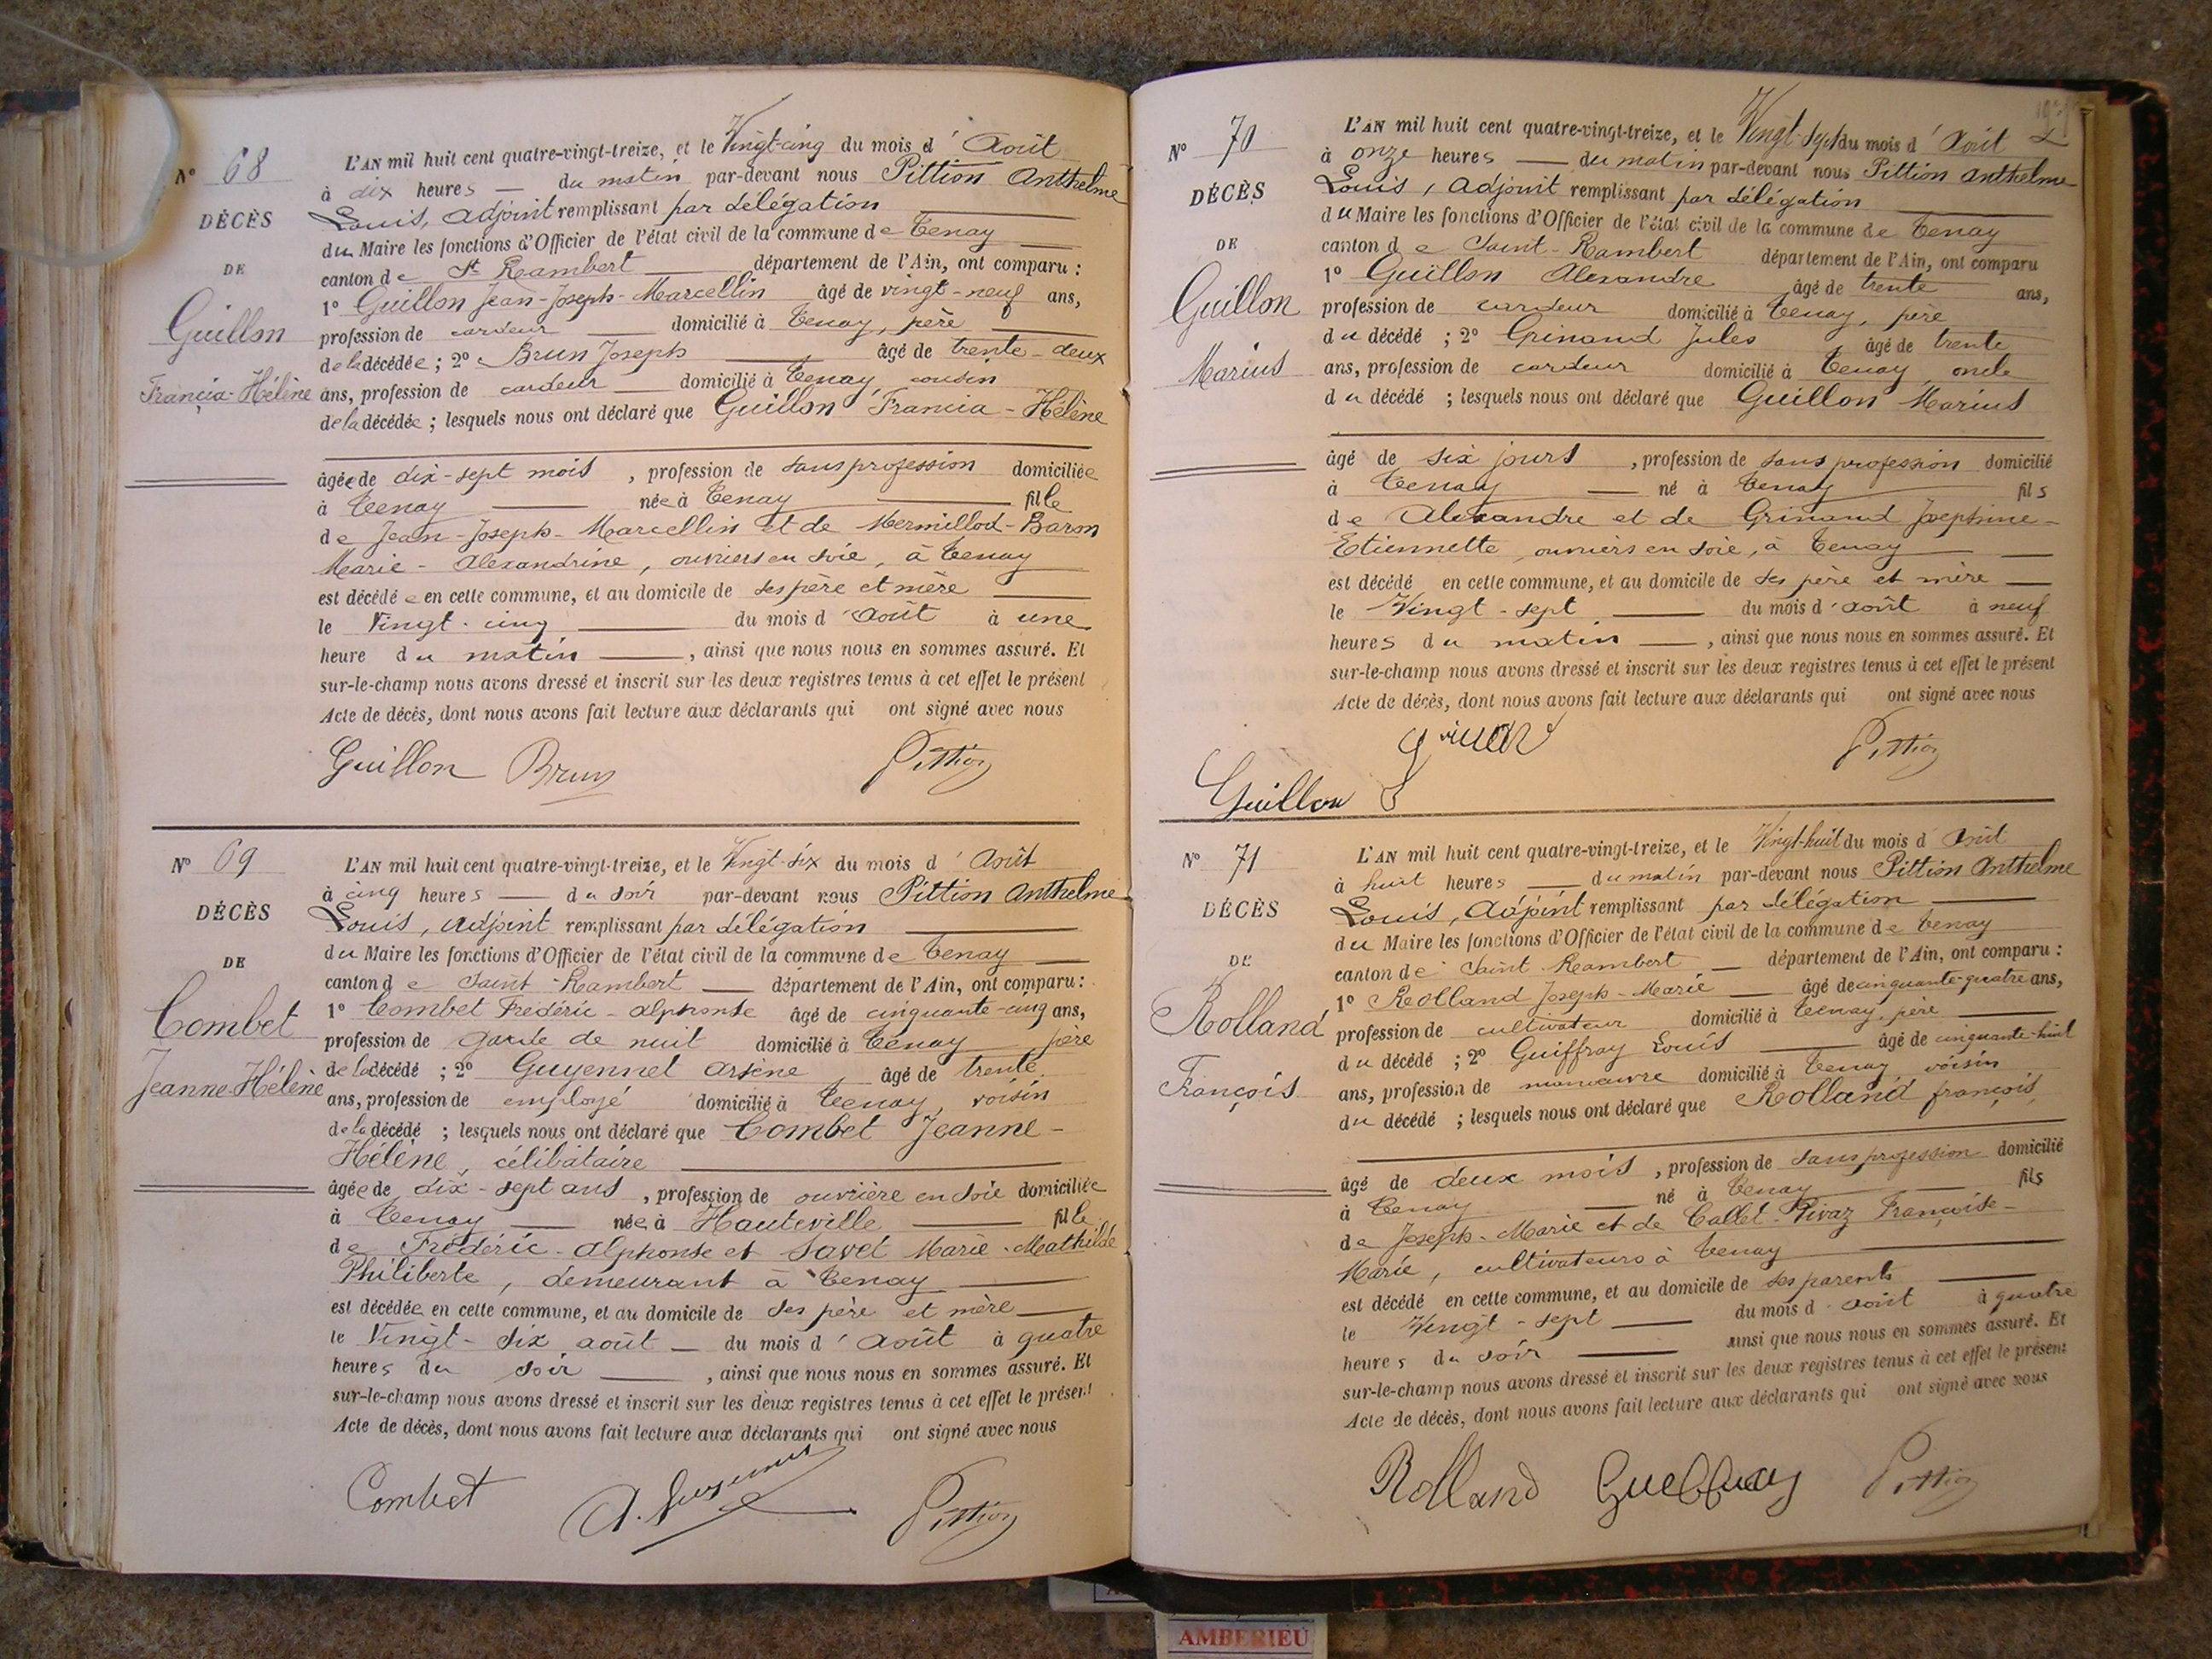 N° 68
DÉCÈS
DE
Guillon
Francia-Hélène
L'AN mil huit cent quatre-vingt-treize, et le Vingt-cinq du mois d'Août
à dix heures — du matin par-devant nous Pittion Anthelme
Louis, adjoint remplissant par délégation
du Maire les fonctions d'Officier de l'état civil de la commune de Tenay
canton de St Rambert département de l'Ain, ont comparu :
1° Guillon Jean-Joseph-Marcellin âgé de vingt-neuf ans,
profession de cardeur domicilié à Tenay, père
de la décédée ; 2° Brun Joseph âgé de trente-deux
ans, profession de cardeur domicilié à Tenay cousin
de la décédée ; lesquels nous ont déclaré que Guillon Francia-Hélène
âgée de dix-sept mois , profession de sans profession domiciliée
à Tenay née à Tenay fille
de Jean-Joseph-Marcellin et de Mermillod-Baron
Marie-Alexandrine, ouvriers en soie, à Tenay
est décédée en cette commune, et au domicile de ses père et mère
le Vingt-cinq du mois d'août à une
heure du matin , ainsi que nous nous en sommes assuré. Et
sur-le-champ nous avons dressé et inscrit sur les deux registres tenus à cet effet le présent
Acte de décès, dont nous avons fait lecture aux déclarants qui ont signé avec nous
Guillon Brun Pittion
N° 69
DÉCÈS
DE
Combet
Jeanne-Hélène
L'AN mil huit cent quatre-vingt-treize, et le Vingt-six du mois d'Août
à cinq heures — du soir par-devant nous Pittion Anthelme
Louis, adjoint remplissant par délégation
du Maire les fonctions d'Officier de l'état civil de la commune de Tenay
canton de Saint-Rambert département de l'Ain, ont comparu :
1° Combet Frédéric-alphonse âgé de cinquante-cinq ans,
profession de garde de nuit domicilié à Tenay père
de la décédé ; 2° Guyennet Arsène âgé de trente
ans, profession de employé domicilié à Tenay, voisin
de la décédé ; lesquels nous ont déclaré que Combet Jeanne-
Hélène, célibataire
âgée de dix-sept ans , profession de ouvrière en soie domiciliée
à Tenay née à Hauteville fille
de Frédéric-alphonse et Savet Marie-Mathilde
Philiberte, demeurant à Tenay
est décédée en cette commune, et au domicile de ses père et mère
le Vingt-six août du mois d'Août à quatre
heures du soir , ainsi que nous nous en sommes assuré. Et
sur-le-champ nous avons dressé et inscrit sur les deux registres tenus à cet effet le présent
Acte de décès, dont nous avons fait lecture aux déclarants qui ont signé avec nous
Combet A. Guyennet Pittion
N° 70
DÉCÈS
DE
Guillon
Marius
L'AN mil huit cent quatre-vingt-treize, et le Vingt-sept du mois d'Août
à onze heures — du matin par-devant nous Pittion anthelme
Louis, adjoint remplissant par délégation
du Maire les fonctions d'Officier de l'état civil de la commune de Tenay
canton de Saint-Rambert département de l'Ain, ont comparu
1° Guillon Alexandre âgé de trente ans,
profession de cardeur domicilié à Tenay, père
du décédé ; 2° Grinand Jules âgé de trente
ans, profession de cardeur domicilié à Tenay, oncle
du décédé ; lesquels nous ont déclaré que Guillon Marius
âgé de six jours , profession de sans profession domicilié
à Tenay né à Tenay fils
de Alexandre et de Grinand Joséphine-
Etiennette, ouvriers en soie, à Tenay
est décédé en cette commune, et au domicile de ses père et mère
le Vingt-sept du mois d'août à neuf
heures du matin , ainsi que nous nous en sommes assuré. Et
sur-le-champ nous avons dressé et inscrit sur les deux registres tenus à cet effet le présent
Acte de décès, dont nous avons fait lecture aux déclarants qui ont signé avec nous
Pittion
Guillon
N° 71
DÉCÈS
DE
Rolland
François
L'AN mil huit cent quatre-vingt-treize, et le Vingt-huit du mois d'Août
à huit heures — du matin par-devant nous Pittion Anthelme
Louis, Adjoint remplissant par délégation
du Maire les fonctions d'Officier de l'état civil de la commune de Tenay
canton de Saint-Rambert département de l'Ain, ont comparu :
1° Rolland Joseph-Marie âgé de cinquante-quatre ans,
profession de cultivateur domicilié à Tenay, père
du décédé ; 2° Guiffray Louis âgé de cinquante-huit
ans, profession de manœuvre domicilié à Tenay, voisin
du décédé ; lesquels nous ont déclaré que Rolland françois
âgé de deux mois , profession de sans profession domicilié
à Tenay né à Tenay fils
de Joseph-Marie et de Callet-Pivaz Françoise-
Marie, cultivateurs à Tenay
est décédé en cette commune, et au domicile de ses parents
le Vingt-sept du mois d'août à quatre
heures du soir ainsi que nous nous en sommes assuré. Et
sur-le-champ nous avons dressé et inscrit sur les deux registres tenus à cet effet le présent
Acte de décès, dont nous avons fait lecture aux déclarants qui ont signé avec nous
Rolland Pittion
AMBERIEU